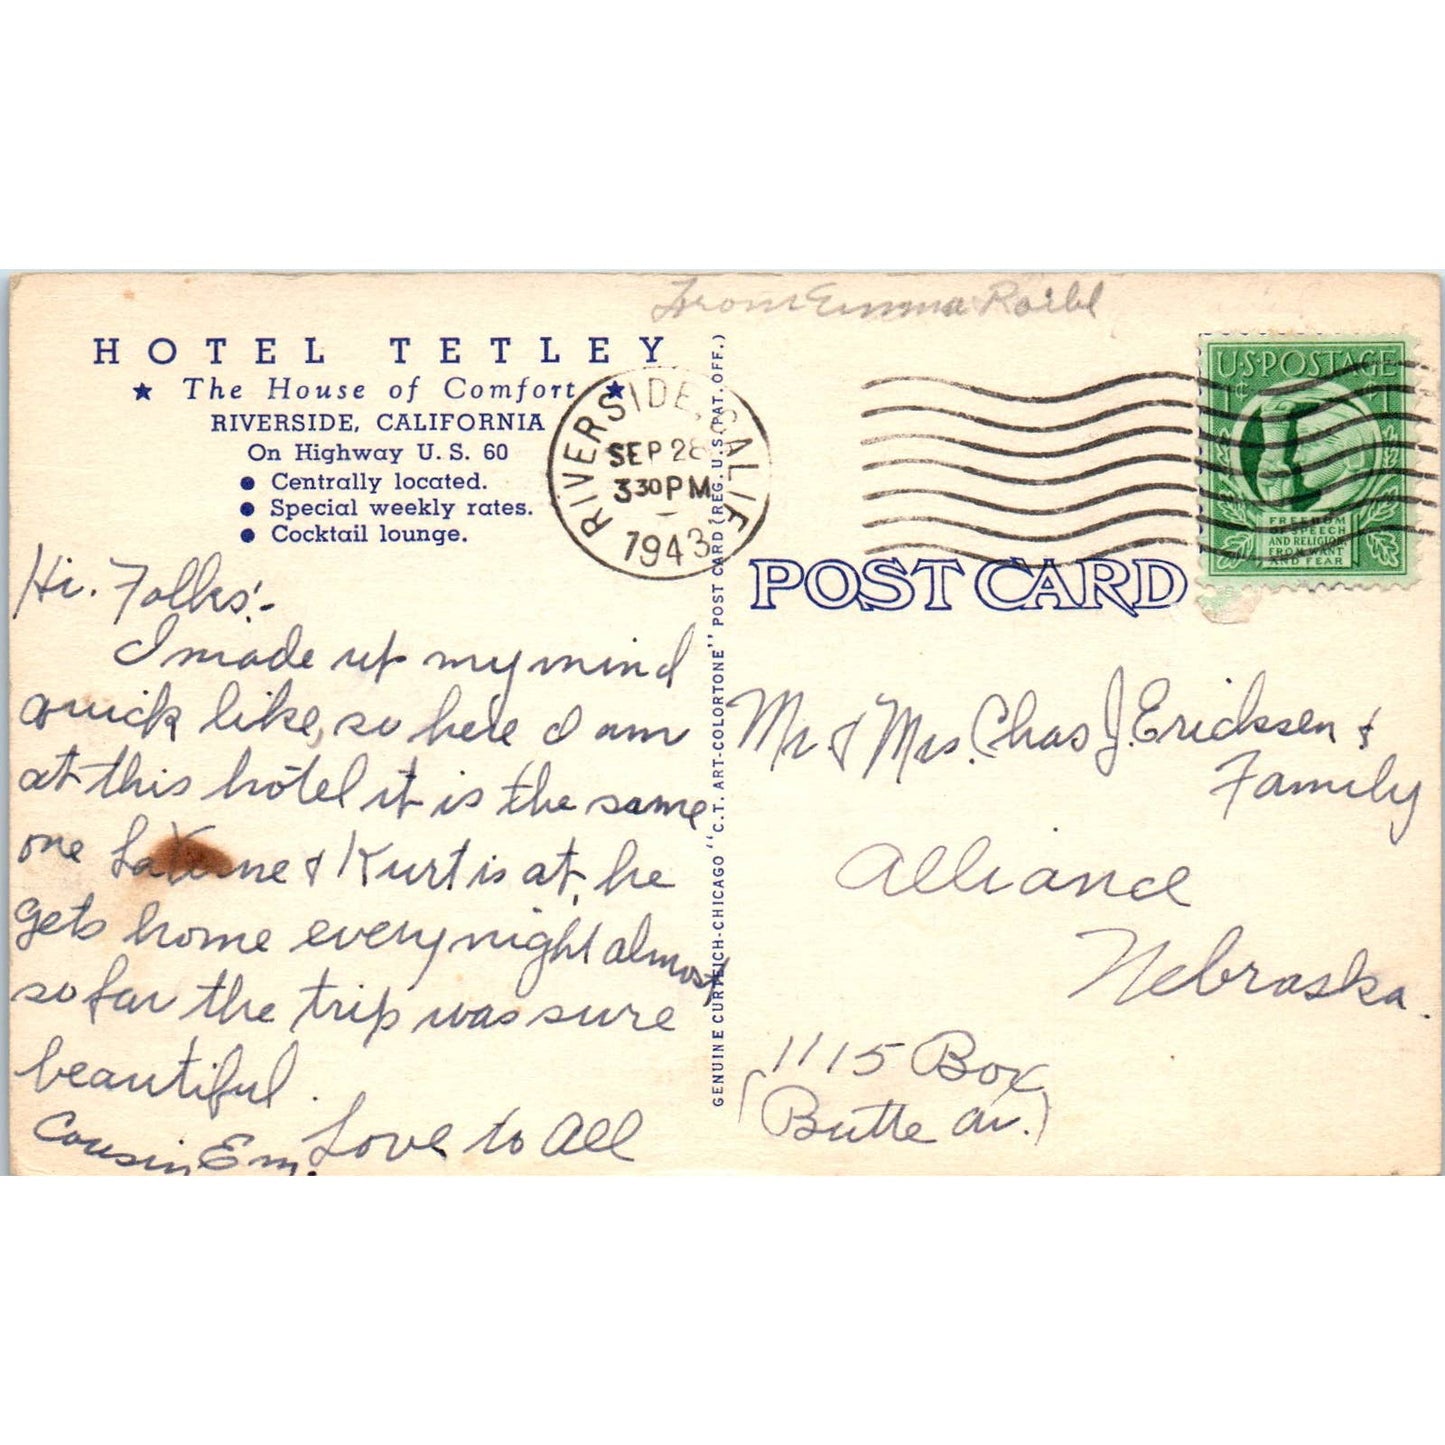 From Emma Raibl
HOTEL TETLEY
★ The House of Comfort ★
RIVERSIDE, CALIFORNIA
On Highway U. S. 60
● Centrally located.
● Special weekly rates.
● Cocktail lounge.
RIVERSIDE, CALIF
SEP 28
3 30 PM
1943
U·S·POSTAGE
1¢ 1¢
FREEDOM
OF SPEECH
AND RELIGION
FROM WANT
AND FEAR
Hi. Folks:-
I made up my mind
quick like, so here I am
at this hotel it is the same
one LaVerne & Kurt is at, he
gets home every night almost
so far the trip was sure
beautiful.
Love to All
Cousin Em.
GENUINE CURTEICH-CHICAGO "C.T. ART-COLORTONE" POST CARD (REG. U.S. PAT. OFF.)
POST CARD
Mr & Mrs. Chas J. Ericksen &
Family
Alliance
Nebraska.
1115 Box
(Butte Av.)